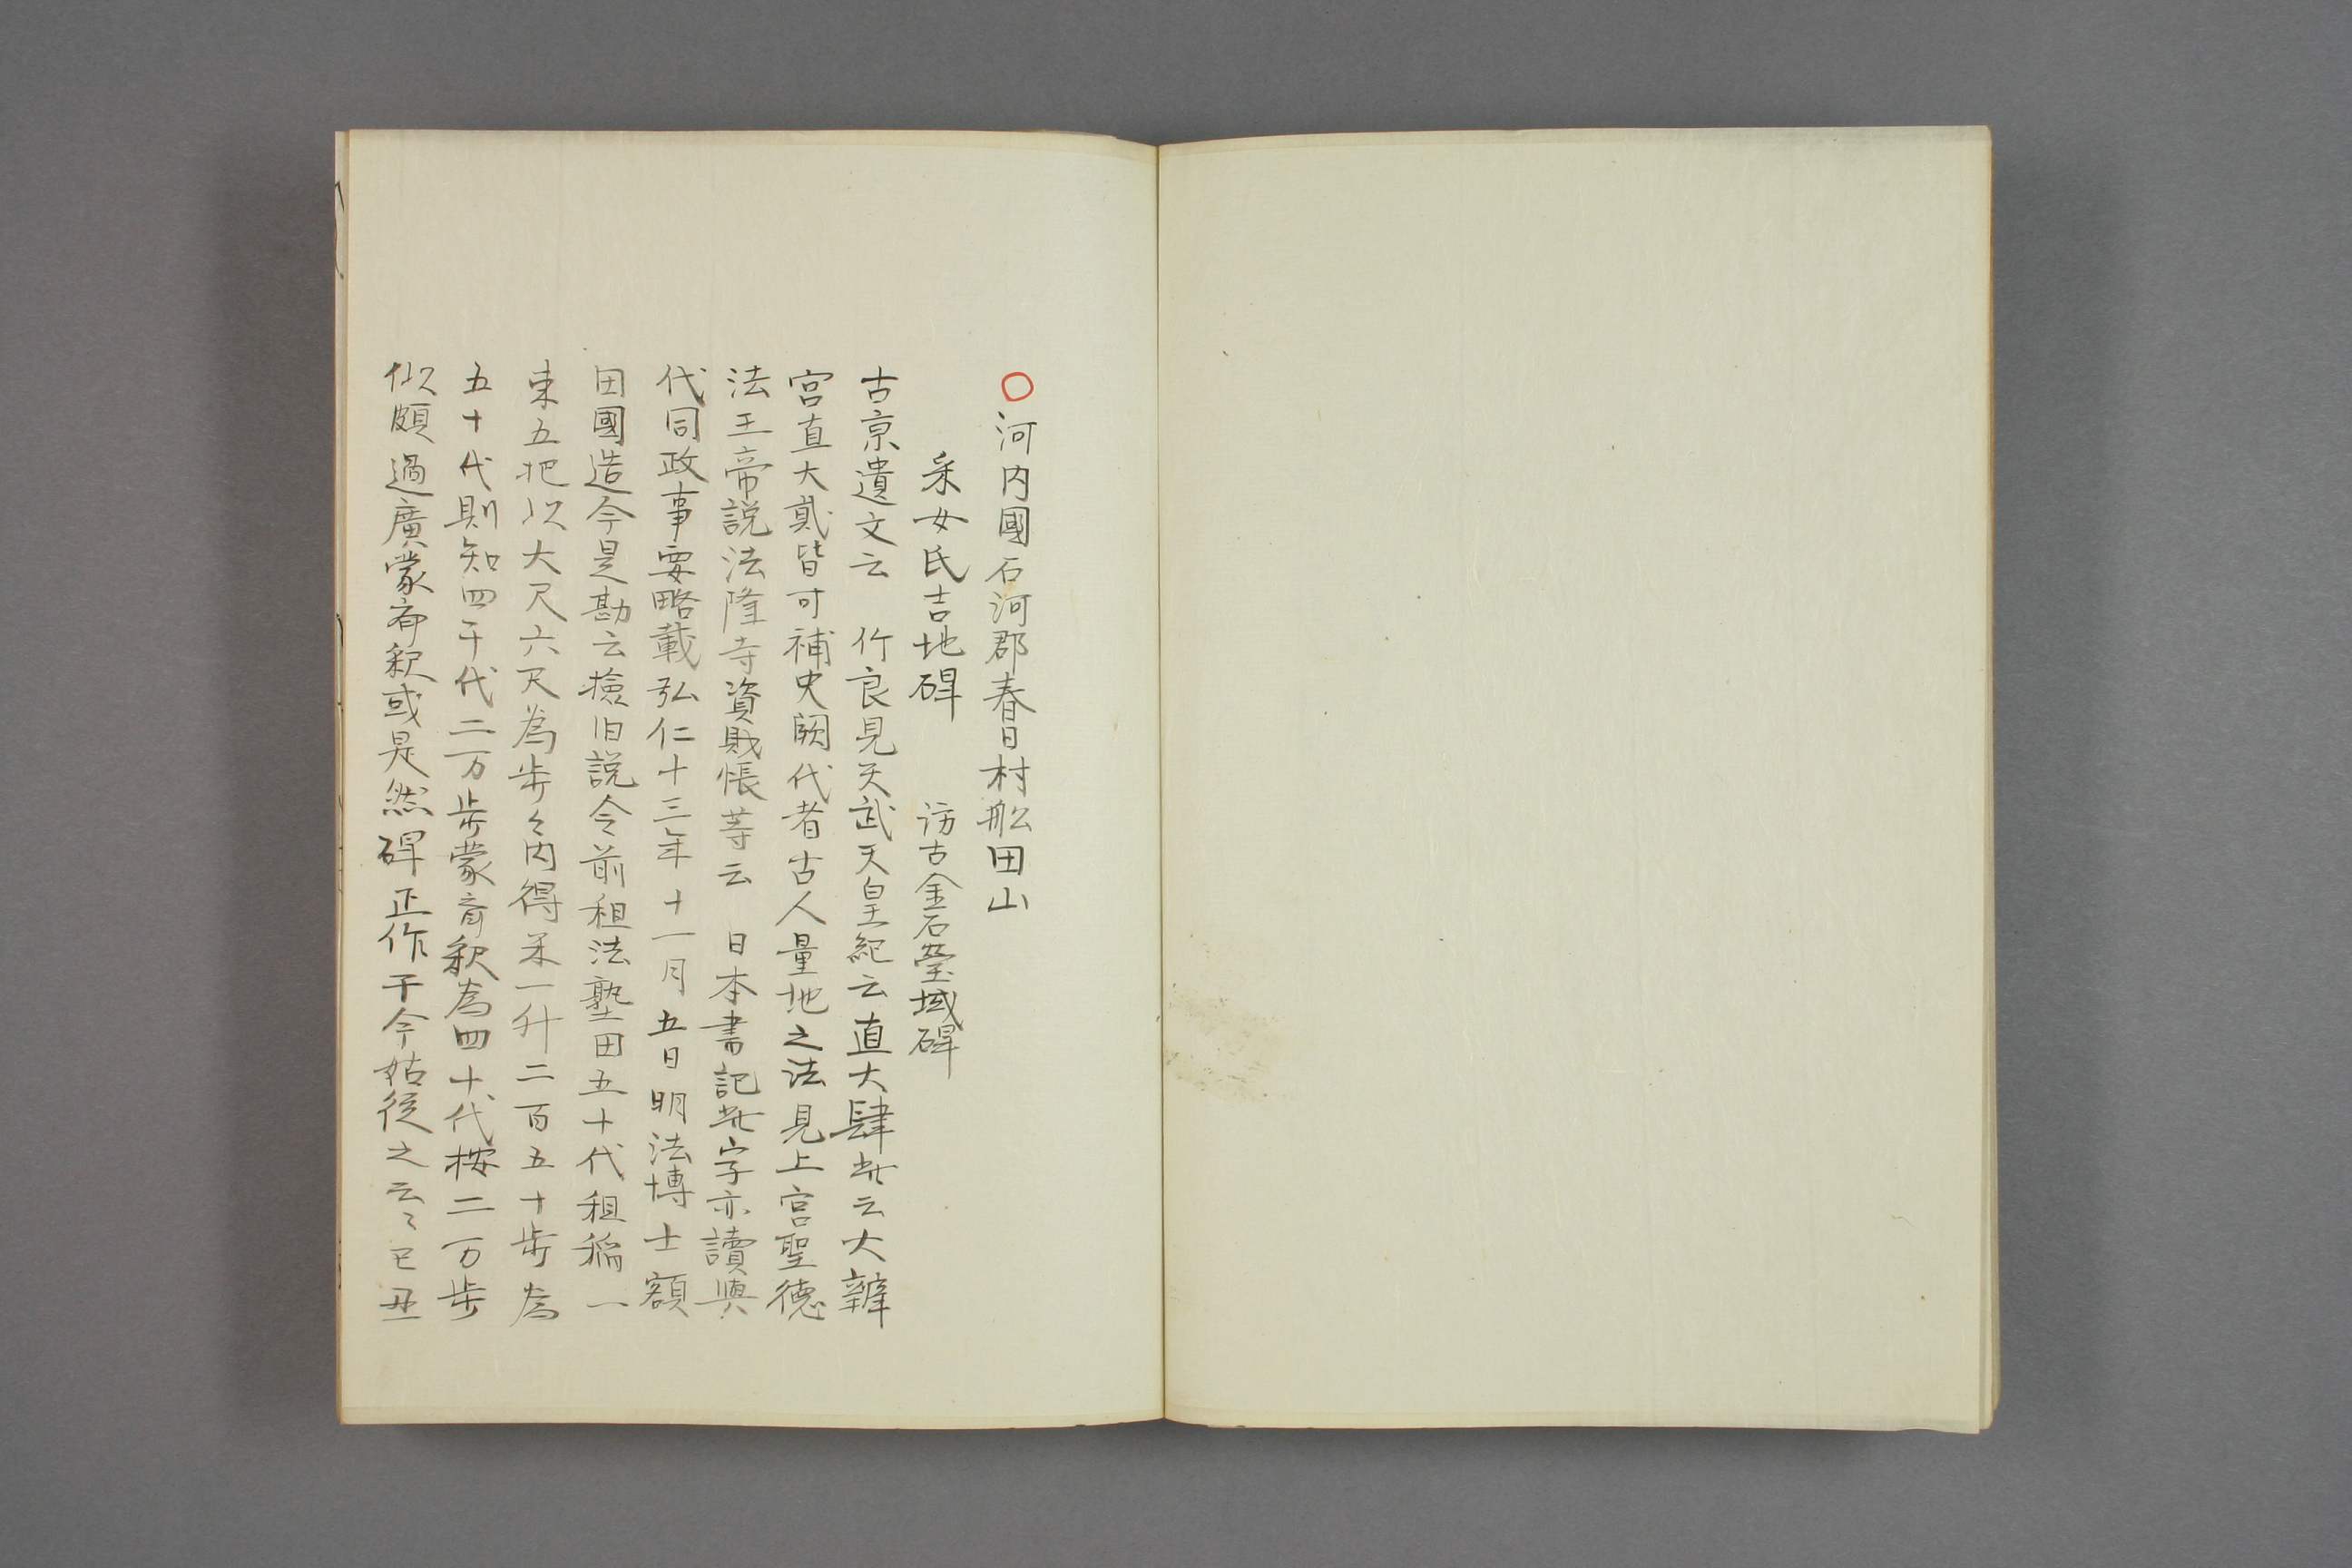 ○河内國石河郡春日村舩田山
采女氏吉地碑　訪古金石塋域碑
古京遺文云　竹良見天武天皇紀云直大肆此云大辨
宮直大貳皆可補史闕代者古人量地之法見上宮聖德
法王帝説法隆寺資財帳䓁云　日本書記此字亦讀與
代同政事要略載弘仁十三年十一月五日明法博士額
田國造今是勘云撿旧説令前租法塾田五十代租稲一
束五把以大尺六尺為步々内得米一升二百五十步為
五十代則知四千代二万步蒙斎釈為四十代桉二万步
似頗過廣蒙斎釈或是然碑正作千今姑從之云々己丑